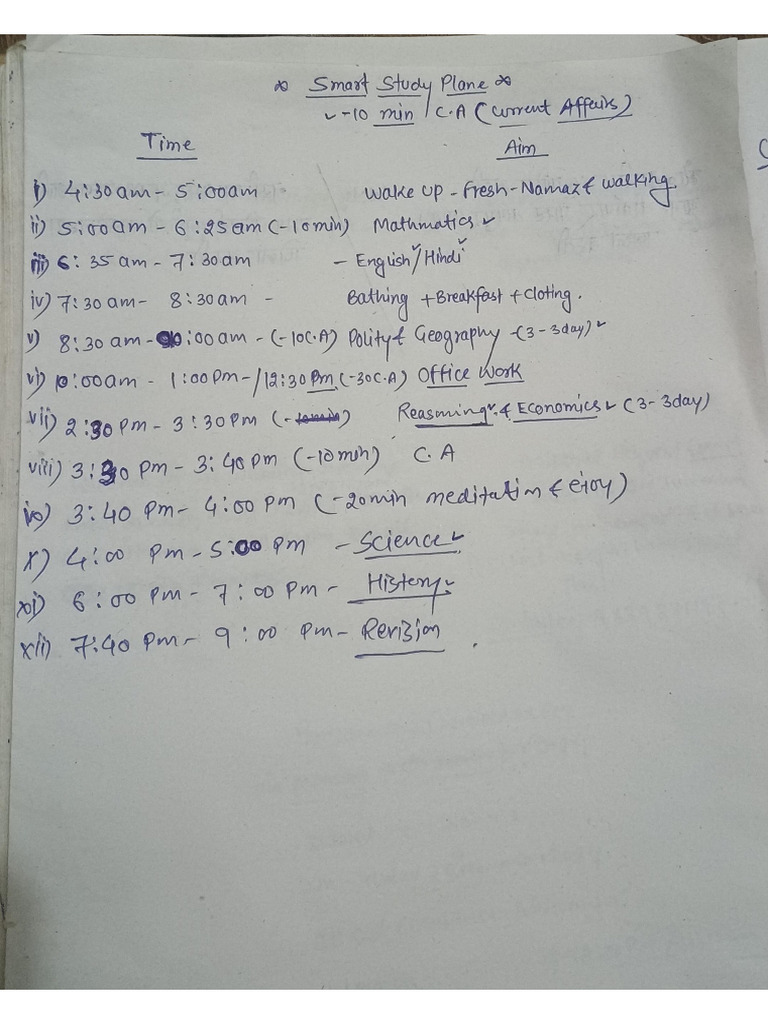 * Smart Study Plane *
✓ -10 min / C.A (Current Affairs)
Time Aim
i) 4:30 am - 5:00 am Wake up - Fresh - Namaz & walking.
ii) 5:00 am - 6:25 am (-10 min) Mathmatics ✓
iii) 6:35 am - 7:30 am - English✓/Hindi✓
iv) 7:30 am - 8:30 am - Bathing + Breakfast + Cloting.
v) 8:30 am - 10:00 am - (-10 C.A) Polity & Geography - (3-3 day) ✓
vi) 10:00 am - 1:00 Pm - /12:30 Pm (-30 C.A) Office Work
vii) 2:30 Pm - 3:30 Pm (-10min) Reasming ✓ & Economics ✓ (3-3 day)
viii) 3:30 Pm - 3:40 Pm (-10 min) C.A
3:40 Pm - 4:00 Pm (-20 min meditation & ejoy)
x) 4:00 Pm - 5:00 Pm - Science ✓
xi) 6:00 Pm - 7:00 Pm - History ✓
xii) 7:40 Pm - 9:00 Pm - Revision.